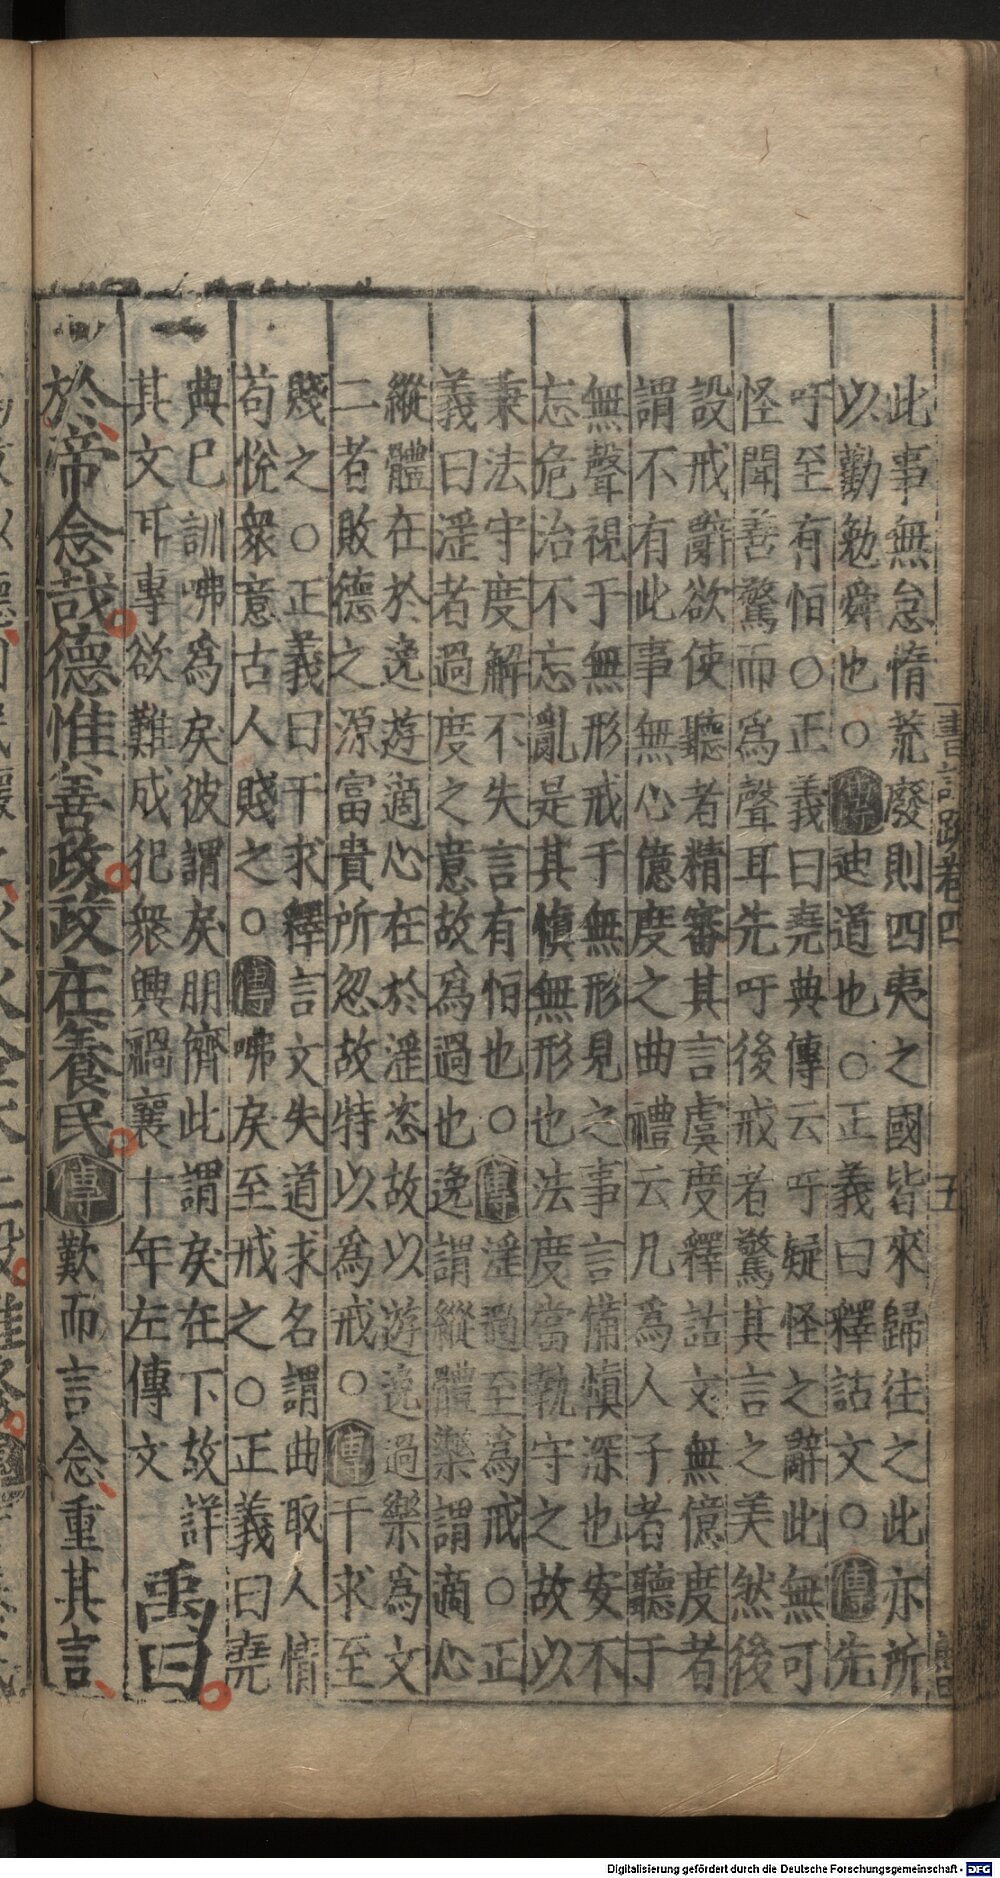 此事無怠惰荒廢則四夷之國皆來歸往之此亦所
以勸勉舜也○傳迪道也○正義曰釋詁文○傳先
吁至有怕○正義曰堯典傳云吁疑怪之辭此無可
怪聞善驚而為聲耳先吁後戒者驚其言之美然後
設戒辭欲使聽者精審其言虞度釋詁文無億度者
謂不有此事無心億度之曲禮云凡為人子者聽于
無聲視于無形戒于無形見之事言備慎深也安不
忘危治不忘亂是其慎無形也法度當執守之故以
秉法守度解不失言有怕也○傳淫過至為戒○正
義曰淫者過度之意故為過也逸謂縱體樂謂適心
縱體在於逸遊適心在於淫恣故以遊逸過樂為文
二者敗德之源富貴所忽故特以為戒○傳干求至
賤之○正義曰干求釋言文失道求名謂曲取人情
苟悅衆意古人賤之○傳咈戾至戒之○正義曰堯
典已訓咈為戾彼謂戾朋儕此謂戾在下故詳
其文耳專欲難成犯衆興禍襄十年左傳文
禹曰
於帝念哉德惟善政政在養民傳歎而言念重其言
書註疏卷四
五
Digitalisierung gefördert durch die Deutsche Forschungsgemeinschaft - DFG